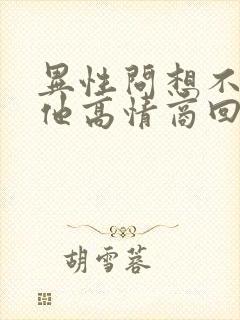 異性問想不
他高情商回
胡雪蓉